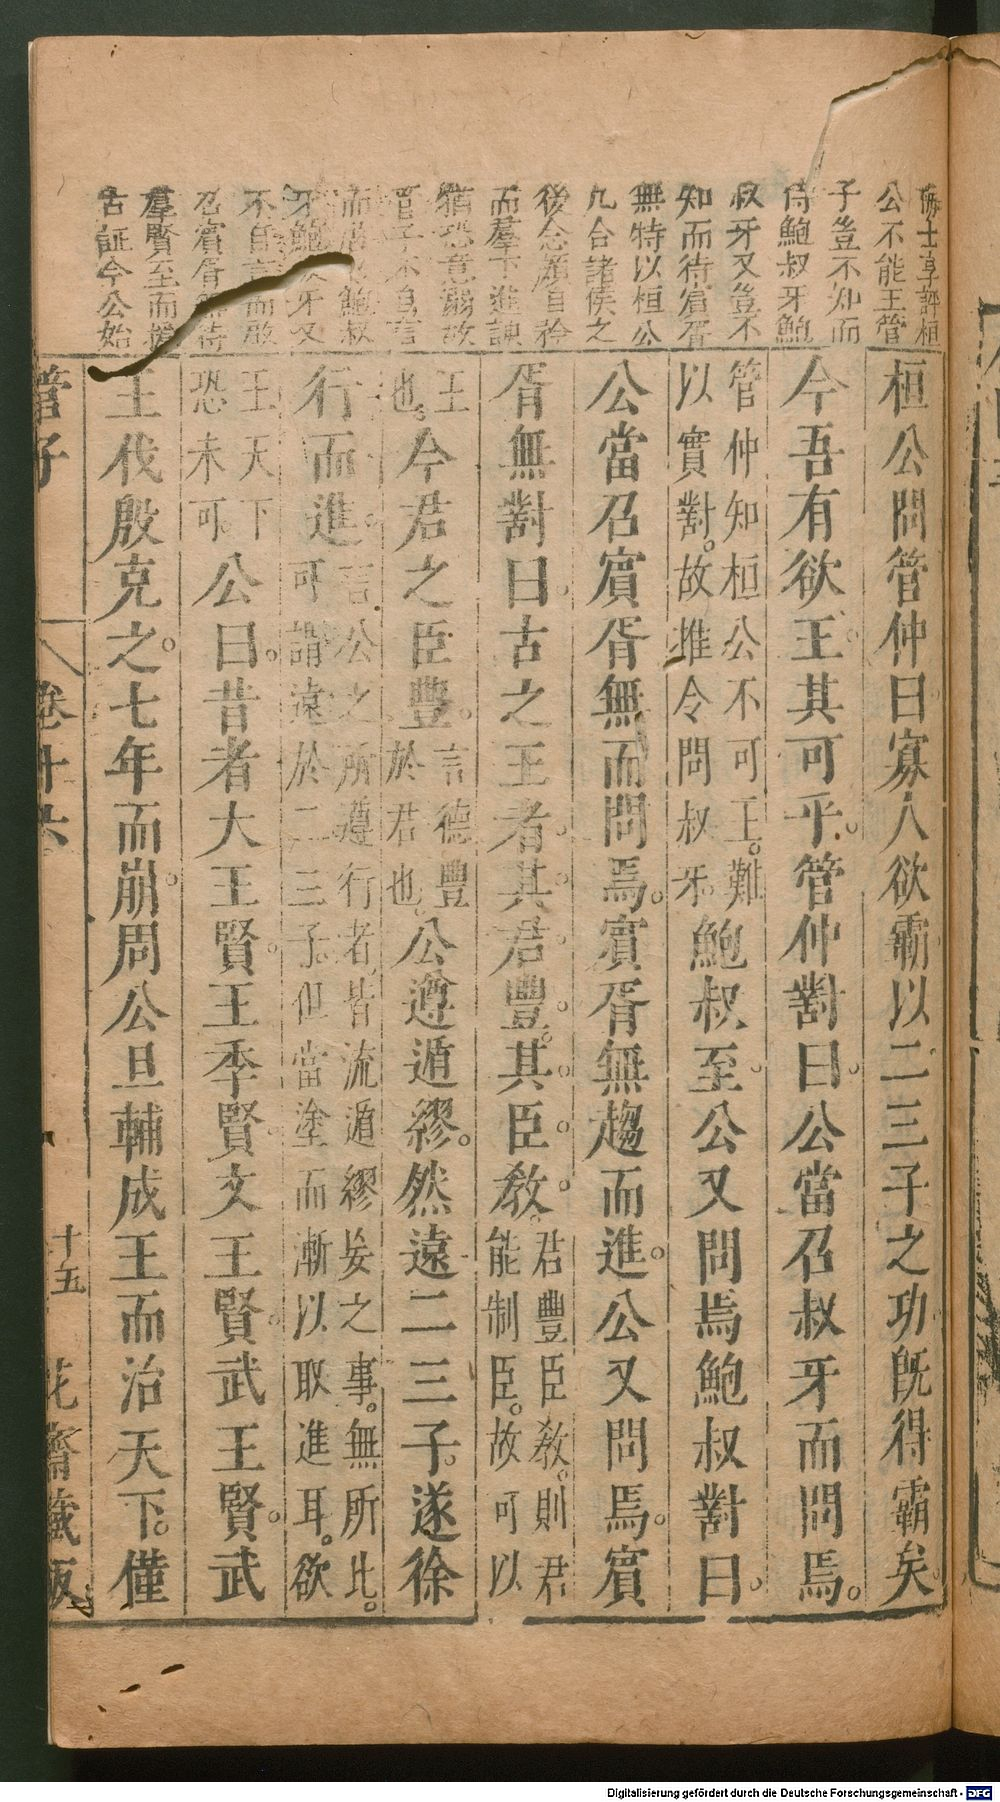 公不能王管
子豈不知而
待鮑叔牙鮑
叔牙又豈不
知而待賓胥
無特以桓公
九合諸侯之
後念頗自矜
而羣下進諛
猶恐意溺故
管子不自言
不自言而
羣賢至而
古証今公始
桓公問管仲曰寡人欲霸以二三子之功旣得霸矣
今吾有欲王其可乎管仲對曰公當召叔牙而問焉
管仲知桓公不可王難
以實對故推令問叔牙
鮑叔至公又問焉鮑叔對曰
公當召賓胥無而問焉賓胥無趨而進公又問焉賓
胥無對曰古之王者其君豐其臣敎
君豐臣敎則君
能制臣故可以
王
也
今君之臣豐
言德豐
於君也
公遵遁繆然遠二三子遂徐
行而進
言公之所遵行者皆流遁繆妄之事無所比
可謂遠於二三子但當塗而漸以取進耳欲
王天下
恐未可
公曰昔者大王賢王季賢文王賢武王賢武
王伐殷克之七年而崩周公旦輔成王而治天下僅
管子
卷十六
十五
花齋藏板
Digitalisierung gefördert durch die Deutsche Forschungsgemeinschaft - DFG